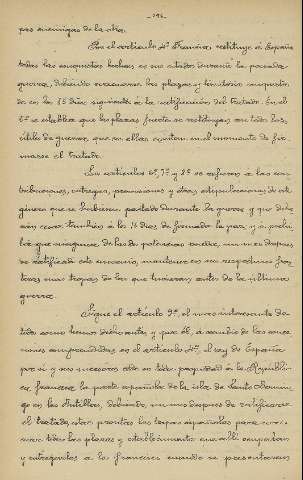 - 196 -
pas enemigas de la otra.
Por el artículo 4º Francia restituye á España
todas las conquistas hechas en sus estados durante la pasada
guerra, debiendo evacuarse las plazas y territorios conquista-
dos en los 15 dias siguientes á la ratificación del tratado. En el
5º se establece que las plazas fuertes se restituyan con todos los
útiles de guerra que en ellas existan en el momento de fir-
marse el tratado.
Los artículos 6º, 7º y 8º se refieren á las con-
tribuciones, entregas, provisiones y otras estipulaciones de este
género que se hubiesen pactado durante la guerra y que debe-
rán cesar también á los 15 dias de firmada la paz, y á prohi-
bir que ninguna de las dos potencias pueda, un mes despues
de ratificado este convenio, mantener en sus respectivas fron-
teras mas tropas de las que tuvieran antes de la última
guerra.
Sigue el artículo 9º, el mas interesante de
todos como hemos dicho antes y por él, á cambio de las conce-
siones comprendidas en el artículo 4º, el rey de España
por sí y sus sucesores cede en toda propiedad á la Repúbli-
ca francesa la parte española de la isla de Santo Domin-
go en las Antillas, debiendo, un mes despues de ratificarse
el tratado, estar prontas las tropas españolas para eva-
cuar todas las plazas y establecimientos que allí ocupaban
y entregarlos á los franceses cuando se presentaran